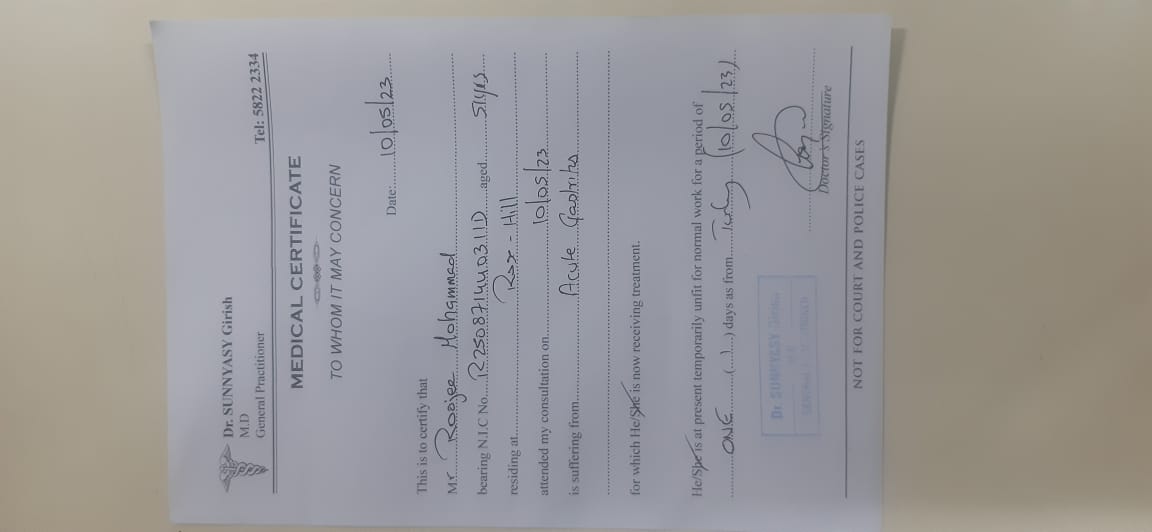 Dr. SUNNYASY Girish
M.D
General Practitioner
Tel: 5822 2334
MEDICAL CERTIFICATE
TO WHOM IT MAY CONCERN
Date: 10/05/23
This is to certify that
Mr Roojee Mohammed
bearing N.I.C No. R250871440311D aged 51yrs
residing at Rose - Hill
attended my consultation on 10/05/23
is suffering from Acute Gastritis
for which He/She is now receiving treatment.
He/She is at present temporarily unfit for normal work for a period of
ONE (1) days as from Today (10/05/23)
Doctor's Signature
Dr. SUNNYASY Girish
NOT FOR COURT AND POLICE CASES